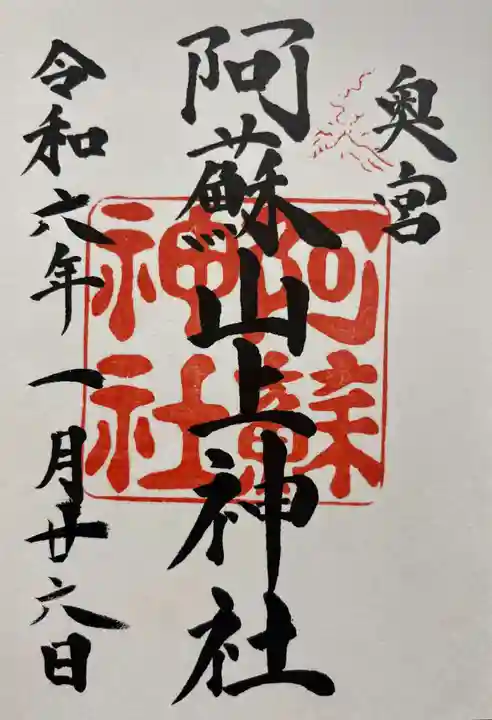 奥宮
阿蘇山上神社
阿蘇
神社
令和六年一月廿六日